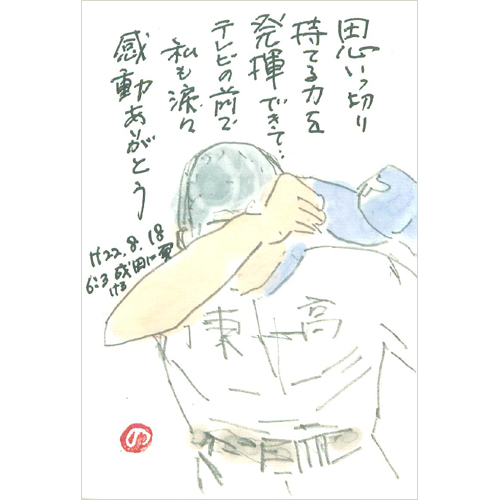 思いっ切り
持てる力を
発揮できて…
テレビの前で
私も涙々
感動ありがとう
H22.8.18
6:3成田に負
ける
東 高
の